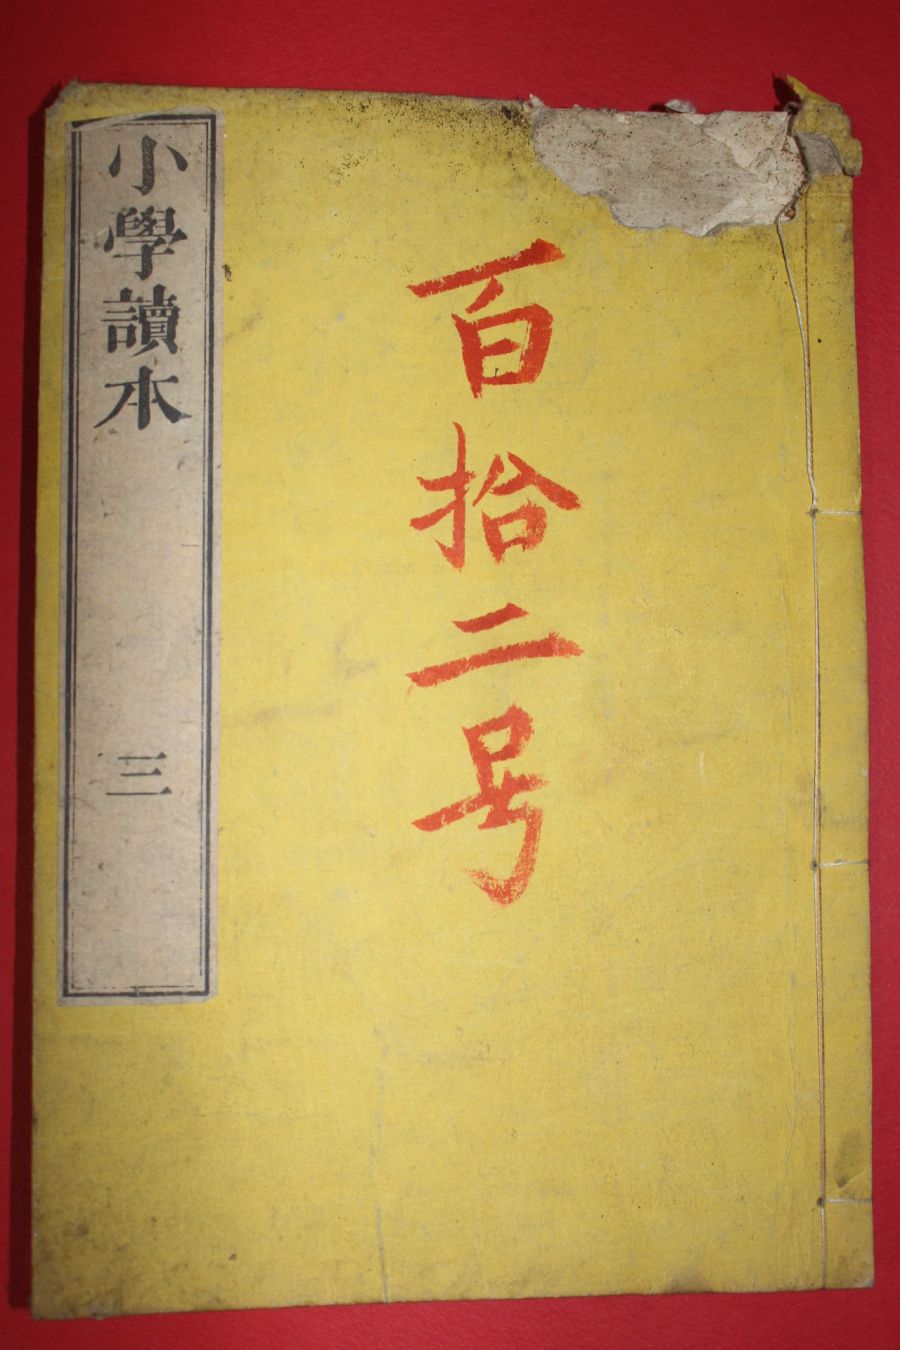 百拾二号
小學讀本 三